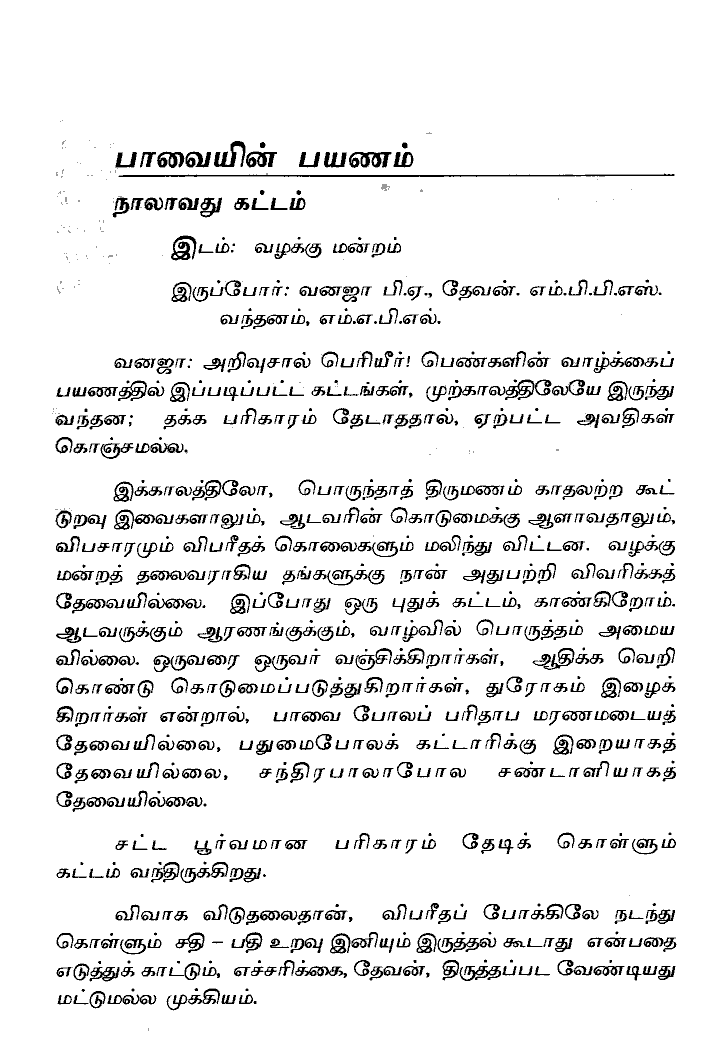 பாவையின் பயணம்
நாலாவது கட்டம்
இடம்: வழக்கு மன்றம்
இருப்போர்: வனஜா பி.ஏ., தேவன். எம்.பி.பி.எஸ்.
வந்தனம், எம்.எ.பி.எல்.
வனஜா: அறிவுசால் பெரியீர்! பெண்களின் வாழ்க்கைப்
பயணத்தில் இப்படிப்பட்ட கட்டங்கள், முற்காலத்திலேயே இருந்து
வந்தன; தக்க பரிகாரம் தேடாததால், ஏற்பட்ட அவதிகள்
கொஞ்சமல்ல.
இக்காலத்திலோ, பொருந்தாத் திருமணம் காதலற்ற கூட்
டுறவு இவைகளாலும், ஆடவரின் கொடுமைக்கு ஆளாவதாலும்,
விபசாரமும் விபரீதக் கொலைகளும் மலிந்து விட்டன. வழக்கு
மன்றத் தலைவராகிய தங்களுக்கு நான் அதுபற்றி விவரிக்கத்
தேவையில்லை. இப்போது ஒரு புதுக் கட்டம், காண்கிறோம்.
ஆடவருக்கும் ஆரணங்குக்கும், வாழ்வில் பொருத்தம் அமைய
வில்லை. ஒருவரை ஒருவர் வஞ்சிக்கிறார்கள், ஆதிக்க வெறி
கொண்டு கொடுமைப்படுத்துகிறார்கள், துரோகம் இழைக்
கிறார்கள் என்றால், பாவை போலப் பரிதாப மரணமடையத்
தேவையில்லை, பதுமைபோலக் கட்டாரிக்கு இறையாகத்
தேவையில்லை, சந்திரபாலாபோல சண்டாளியாகத்
தேவையில்லை.
சட்ட பூர்வமான பரிகாரம் தேடிக் கொள்ளும்
கட்டம் வந்திருக்கிறது.
விவாக விடுதலைதான், விபரீதப் போக்கிலே நடந்து
கொள்ளும் சதி – பதி உறவு இனியும் இருத்தல் கூடாது என்பதை
எடுத்துக் காட்டும், எச்சரிக்கை, தேவன், திருத்தப்பட வேண்டியது
மட்டுமல்ல முக்கியம்.